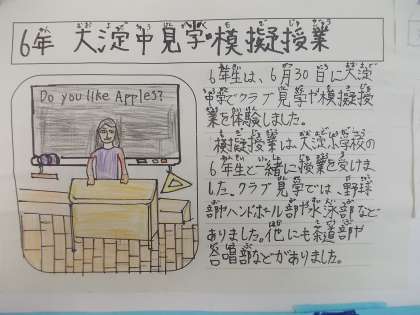 6年 大淀中見学・模擬授業
Do you like Apples?
6年生は、6月30日に大淀
中学でクラブ見学や模擬授
業を体験しました。
模擬授業は大淀小学校の
6年生と一緒に授業を受けま
した。クラブ見学では、野球
部やハンドボール部や水泳部など
ありました。他にも茶道部や
合唱部などがありました。